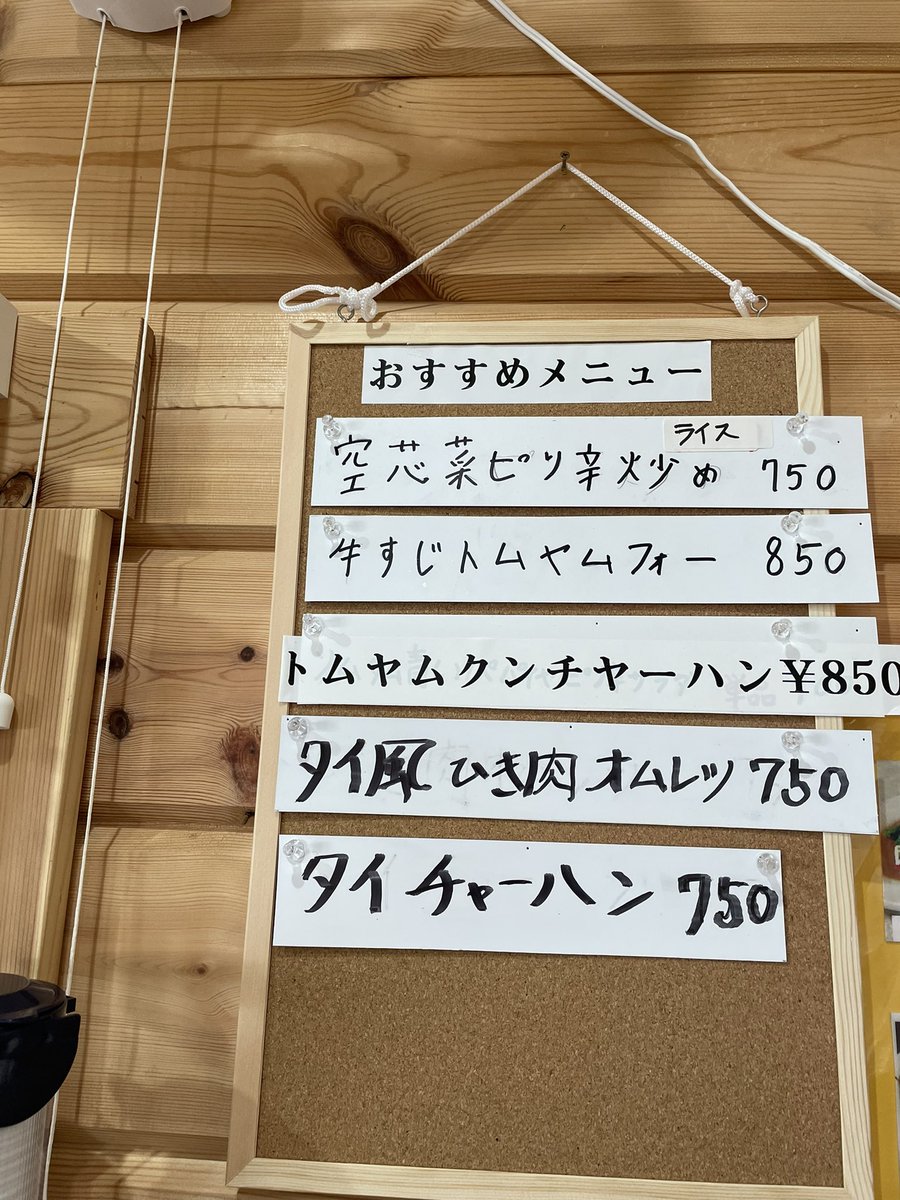 おすすめメニュー
ライス
空芯菜ピリ辛炒め 750
牛すじトムヤムフォー 850
トムヤムクンチャーハン¥850
タイ風ひき肉オムレツ 750
タイチャーハン 750